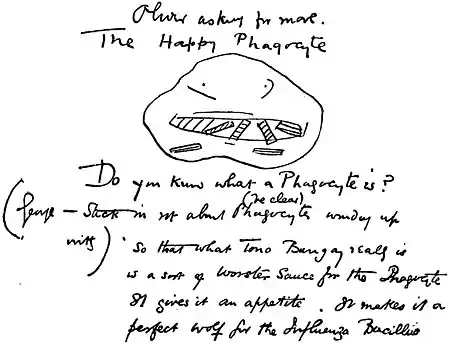 Oliver asking for more.
The Happy Phagocyte
Do you know what a Phagocyte is?
(George — Stick in st about Phagocyte (be clear) wonday up
with)
So that what Tono Bungay really is
is a sort of Worster Sauce for the Phagocyte
It gives it an appetite. It makes it a
perfect wolf for the Influenza Bacillus